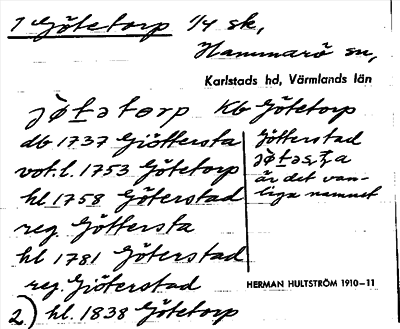 1 Götetorp 1/4 sk,
Hammarö sn,
Karlstads hd, Värmlands län
jò̀tətorp Kb Götetorp
db 1737 Giöttersta
vot.l. 1753 Götetorp
hl 1758 Göterstad
reg Göttersta
hl 1781 Göterstad
reg. Giöterstad
2) hl. 1838 Götetorp
Götterstad
är det van-
liga namnet
HERMAN HULTSTRÖM 1910–11